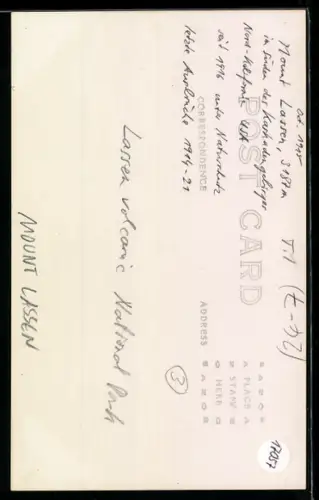 Oct. 1915
Mount Lassen, 3187m
im Süden des Kaskadengebirges
Nord-Kalifornien USA
seit 1916 unter Naturschutz
letzte Ausbrüche 1914-21
POST CARD
CORRESPONDENCE
ADDRESS
AZOR
PLACE
STAMP
HERE
AZOR
Lassen volcanic National Park
3
MOUNT LASSEN